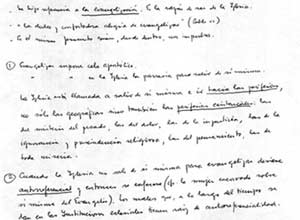 - Se hizo referencia a la evangelización. Es la razón de ser de la Iglesia.
- "la dulce y confortadora alegría de evangelizar" (Pablo VI)
- Es el mismo Jesucristo quien, desde dentro, nos impulsa.
① Evangelizar supone celo apostólico.
" " en la Iglesia la parresia para salir de sí misma.
La Iglesia está llamada a salir de sí misma e ir hacia las periferias,
no sólo las geográficas sino también las periferias existenciales: las
del misterio del pecado, las del dolor, las de la injusticia, las de la
ignorancia y prescindencia religiosa, las del pensamiento, las de
toda miseria.
② Cuando la Iglesia no sale de sí misma para evangelizar deviene
autorreferencial y entonces se enferma (cfr. la mujer encorvada sobre
sí misma del Evangelio). Los males que, a lo largo del tiempo se
dan en las instituciones eclesiales tienen raíz de autorreferencialidad